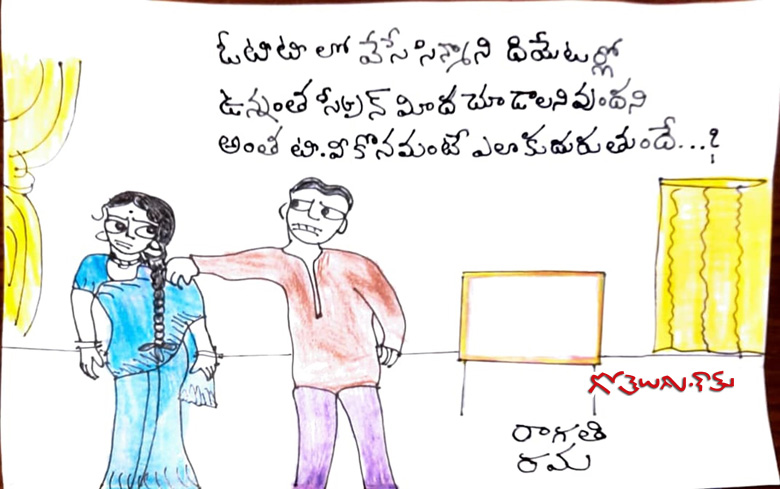 ఓటిటి లో వేసే సిన్మాని థియేటర్లో
ఉన్నంత స్క్రీన్ మీద చూడాలనివుందని
అంత టి.వి కొనమంటే ఎలా కుదురుతుందే...?
గోతెలుగు.కామ్
రాగతి
రమ